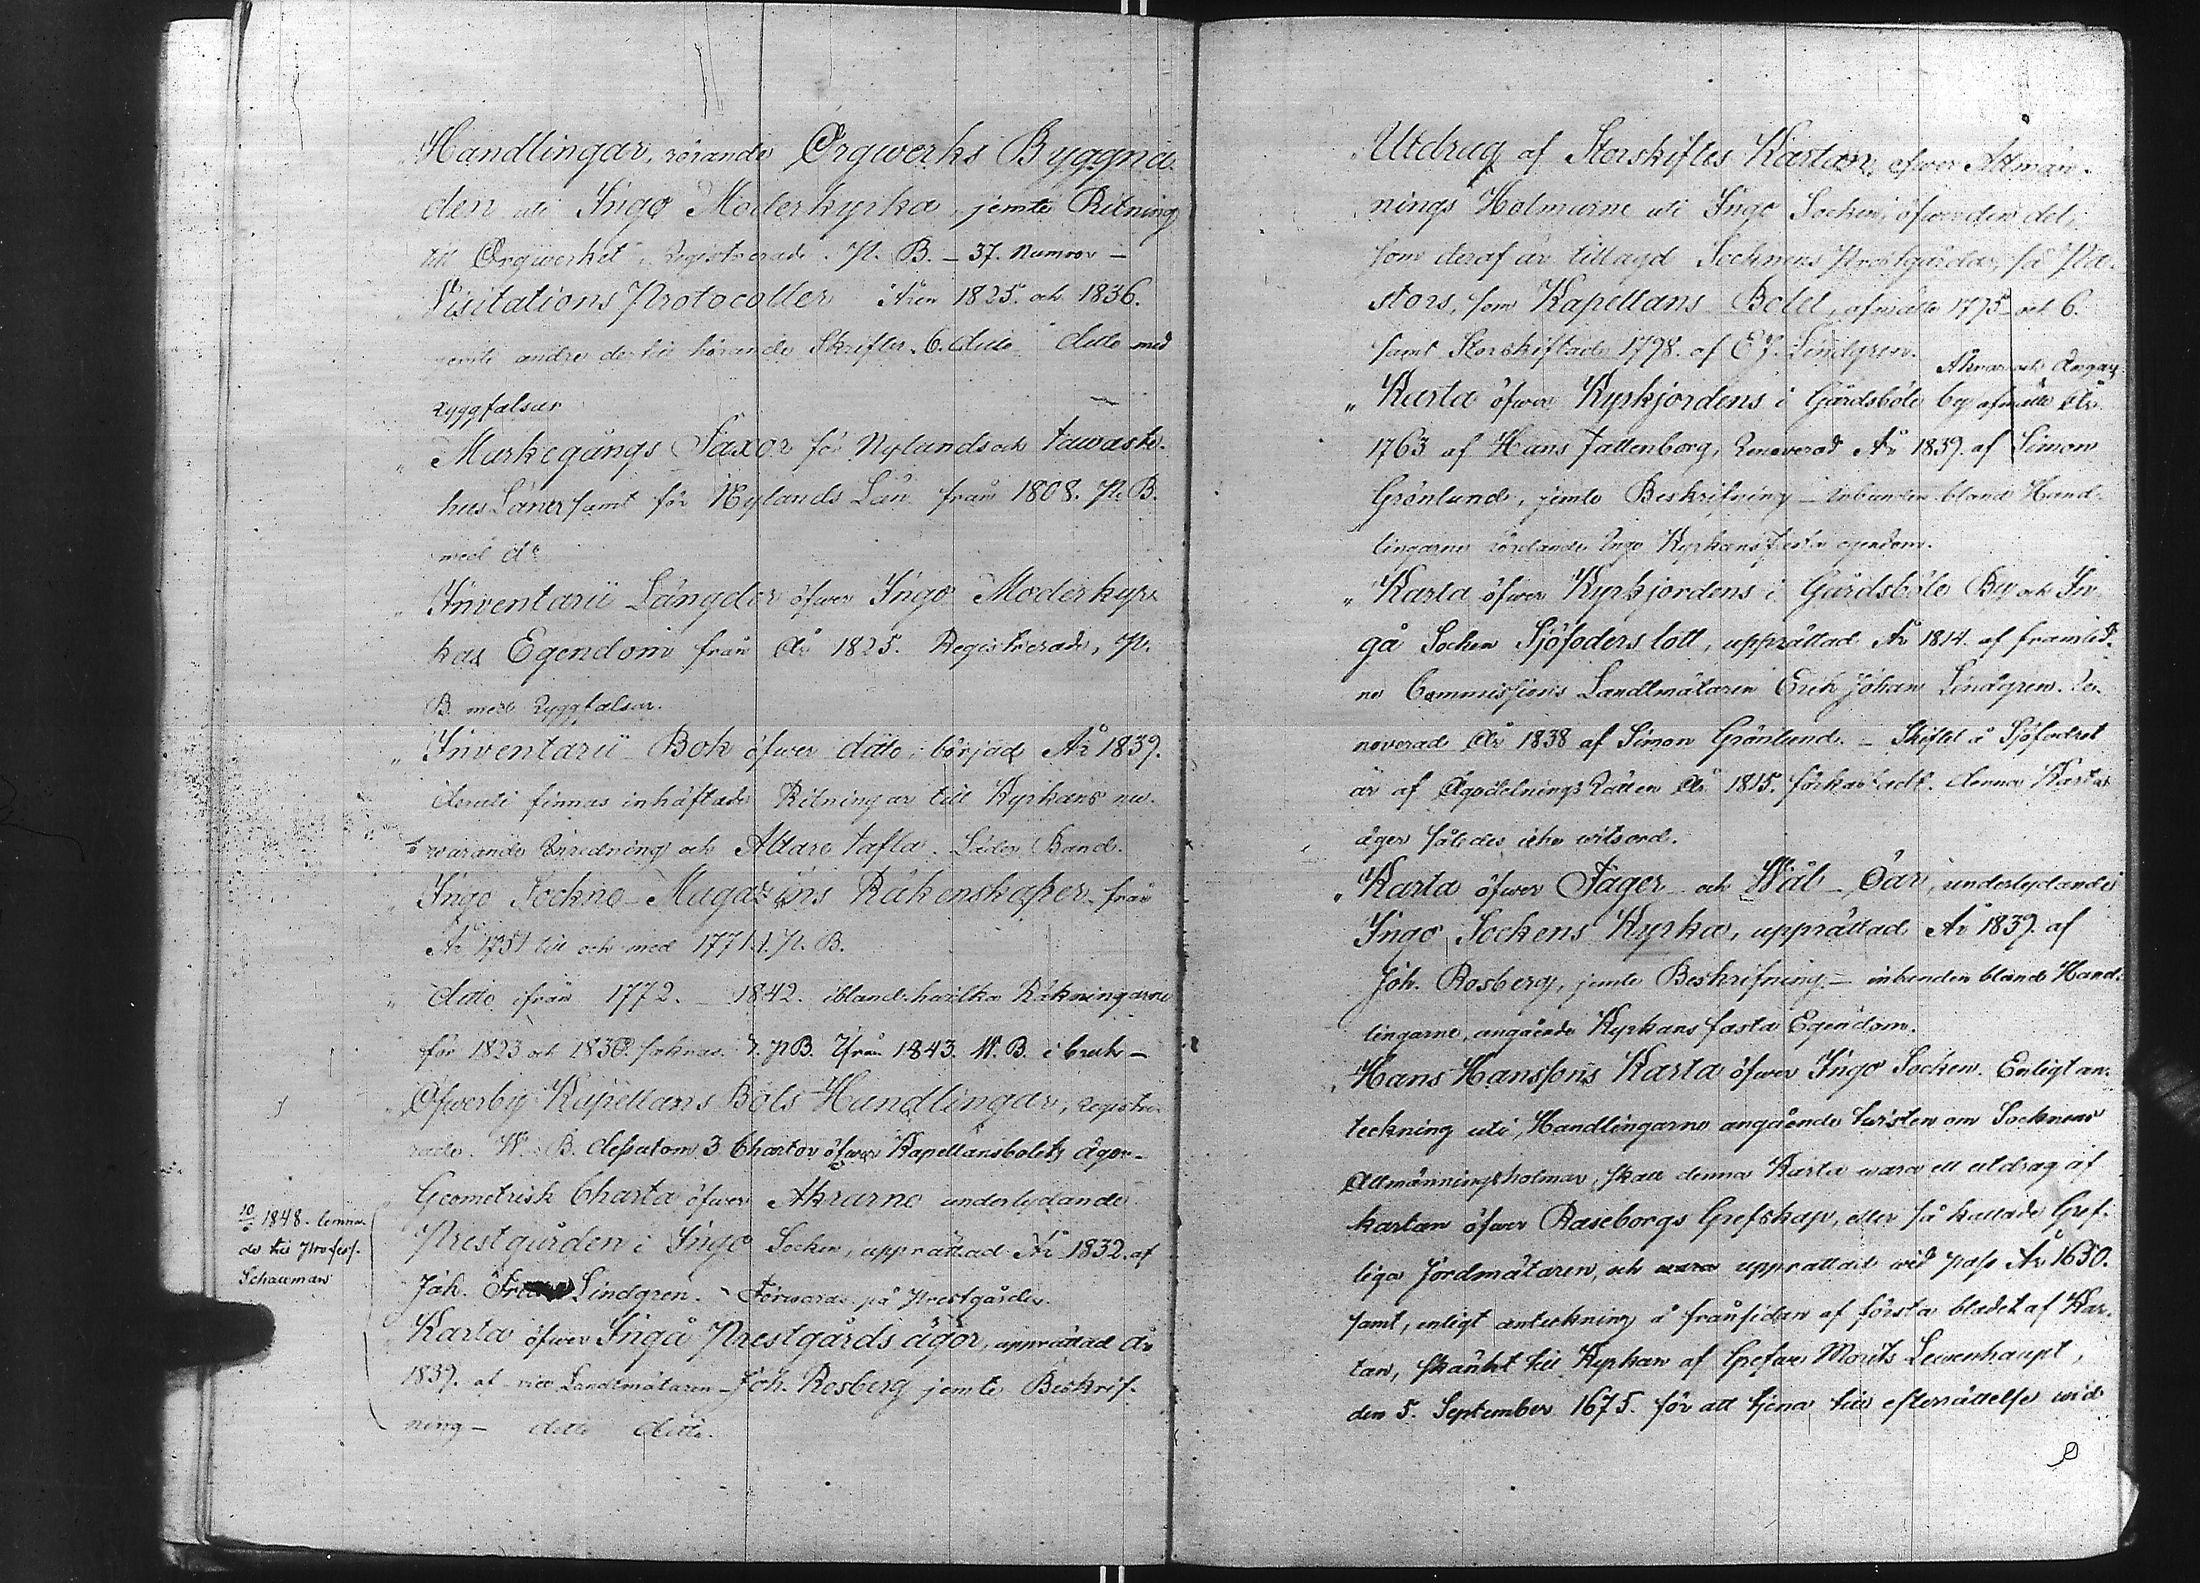 Handlingar, rörande Orgwerks Byggna-
den uti Ingo Moderkyrka, jemte Ritning
till Orgwerket, Registrerade. P. B. – 37. Numror –
Visitations Protocoller Åren 1825. och 1836.
jemte andre dertil hörande Skrifter. 6. dito dito med
Ryggfalsar
„ Markegångs Taxor för Nylands och Tawaste-
hus Läner samt för Nylands Län från 1808. P. B.
med do
„ Inventarii Längder öfwer Ingo Moderkyr-
kas Egendom från År 1825. Registrerade, P.
B. med Ryggfalsar.
„ Inventarii Bok öfwer dito, börjad År 1839.
deruti finnas inhäftade Ritningar till Kyrkans nu-
warande Inredning och Altare tafla. Läder Band.
„ Ingo Sockne-Magazins Räkenskaper från
År 1751 till och med 1771. 1. P. B.
„ dito ifrån 1772. – 1842. ibland hwilka Räkningarne
för 1823 och 1830. saknas. P. B. Ifrån 1843. W. B. i bruk –
„ Öfwerby Kapellans Bols Handlingar, registre-
rade. W. B. dessutom 3 Chartor öfwer Kapellansbolets ägor –
Geometrisk Charta öfwer Åkrarne underlydande
Prestgården i Ingo Socken, upprättad År 1832. af
Joh. Lindgren. – Förwaras på Prestgården.
Karta öfwer Ingå Prestgårds ägor, upprättad År
1839. af vice Landtmätaren Joh. Rosberg jemte Beskrif-
ning – ditto ditto.
10 1848. lemna-
de till Profess.
Schauman
„ Utdrag af Storskiftes Kartan, öfwer Allmän-
nings Holmarne uti Ingo Socken, öfwer den del,
som deraf är tillagd Socknens Prestgårdar, så Pa-
stors, som Kapellans Bolet, afmätte 1775 och 6.
samt Storskiftade 1798. af E. J. Lindgren.
Åkrar och Ängar
„ Karta öfwer Kyrkjordens i Gårdsböle by afmätte År
1763 af Hans Fattenborg, Renoverad År 1839. af Simon
Grönlund, jemte Beskrifning – inbunden bland Hand-
lingarne rörelande Ingo Kyrkans fasta egendom.
„ Karta öfwer Kyrkjordens i Gårdsböle By och In-
gå Socken Sjöfoders lott, upprättad År 1814. af framled-
ne Commissions Landtmätaren Erik Johan Lindgren. Re-
noverad År 1838 af Simon Grönlund. – Skiftet å Sjöfodret
är af Ägodelnings Rätten År 1815. förkastadt. denna Karta
äger således icke witsord.
„ Karta öfwer Fager och Wål-Öar, underlydande
Ingo Sockens Kyrka, upprättad År 1839. af
Joh. Rosberg, jemte Beskrifning. – inbunden bland Hand-
lingarne, angående Kyrkans fasta Egendom.
„ Hans Hanssons Karta öfwer Ingo Socken. Enligt an-
teckning uti Handlingarne angående twisten om Socknens
Allmänningsholmar, skall denna Karta wara ett utdrag af
kartan öfwer Raseborgs Grefskap, eller så kallade Gref-
liga Jordmätaren, och upprättad wid pass År 1650.
samt, enligt anteckning å frånsidan af första bladet af Kar-
tan, skänkt till Kyrkan af Grefwe Morits Lewenhaupt,
den 5. September 1675. för att tjena till efterrättelse wid